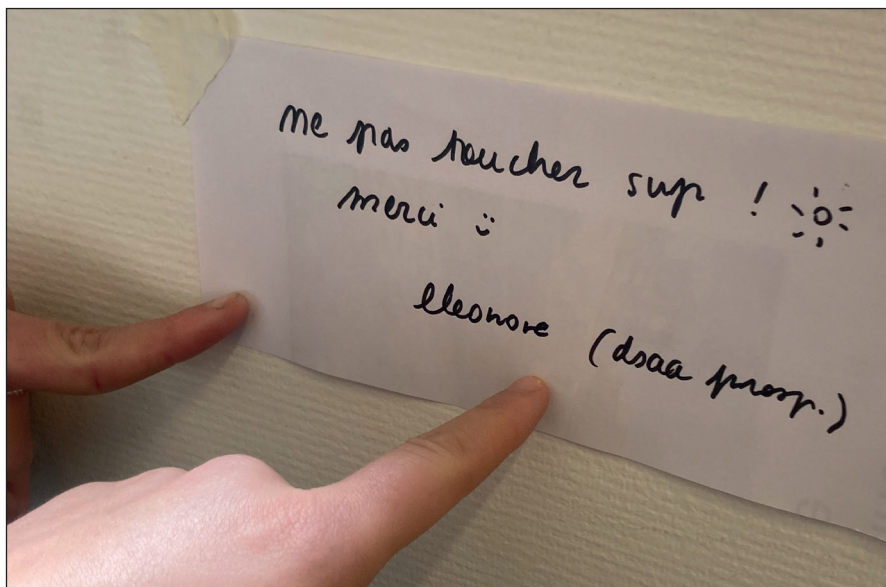 ne pas toucher svp !
merci :)
eleonore (dsaa prosp.)